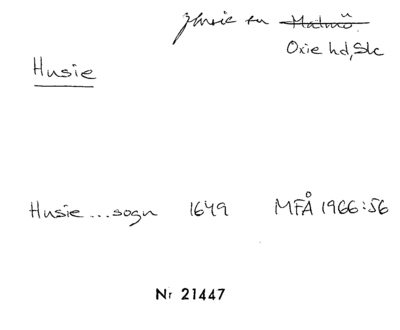 Husie sn Malmö
Oxie hd, Sk
Husie
Husie ... sogn 1649 MFÅ 1966:56
Nr 21447